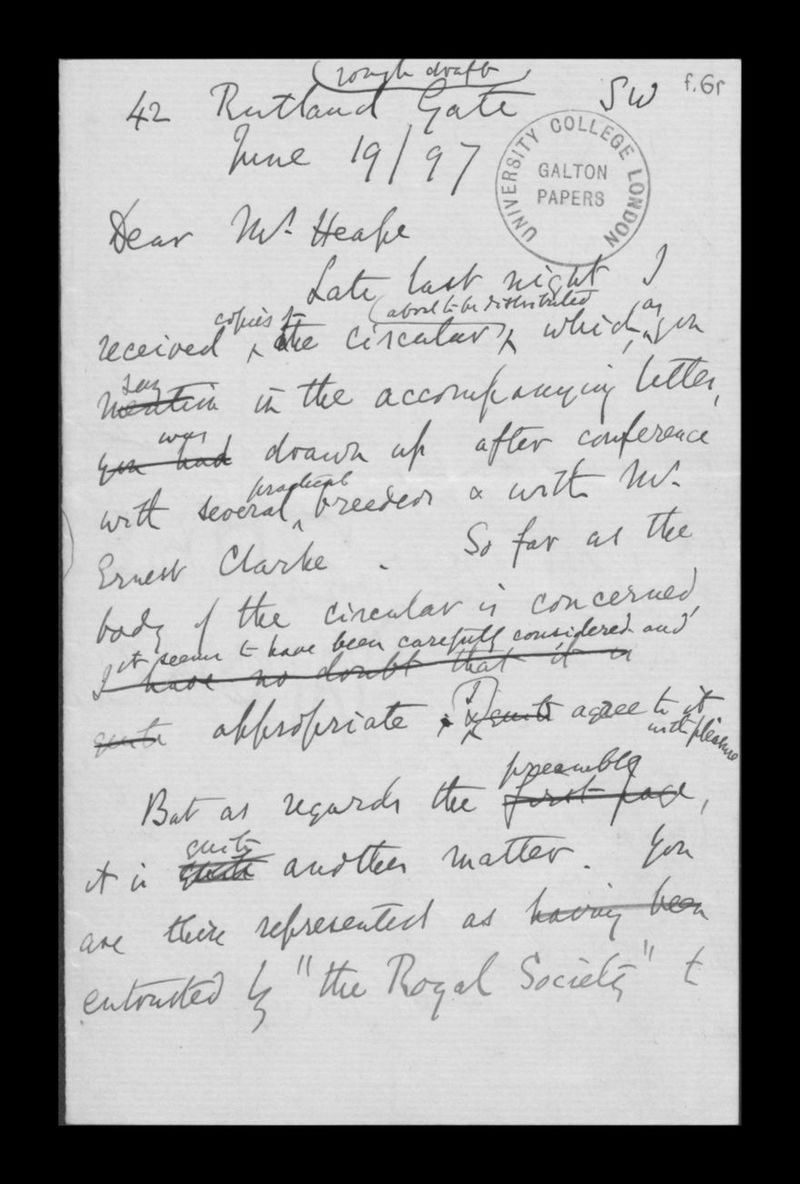 (rough draft)
f.6r
42 Rutland Gate SW
June 19/97
UNIVERSITY COLLEGE LONDON
GALTON
PAPERS
Dear Mr Heape
Late last night I
copies of (about to be distributed as
received the circular), which, you
say
mention in the accompanying letter,
was
you had drawn up after conference
practical
with several breeders & with Mr
Ernest Clarke . So far as the
body of the circular is concerned,
it seems to have been carefully considered and
I have no doubt that it is
I
quite appropriate quite agree to it
with pleasure
preamble
But as regards the first page,
quite
it is another matter. You
are there represented as having been
entrusted by "the Royal Society" t